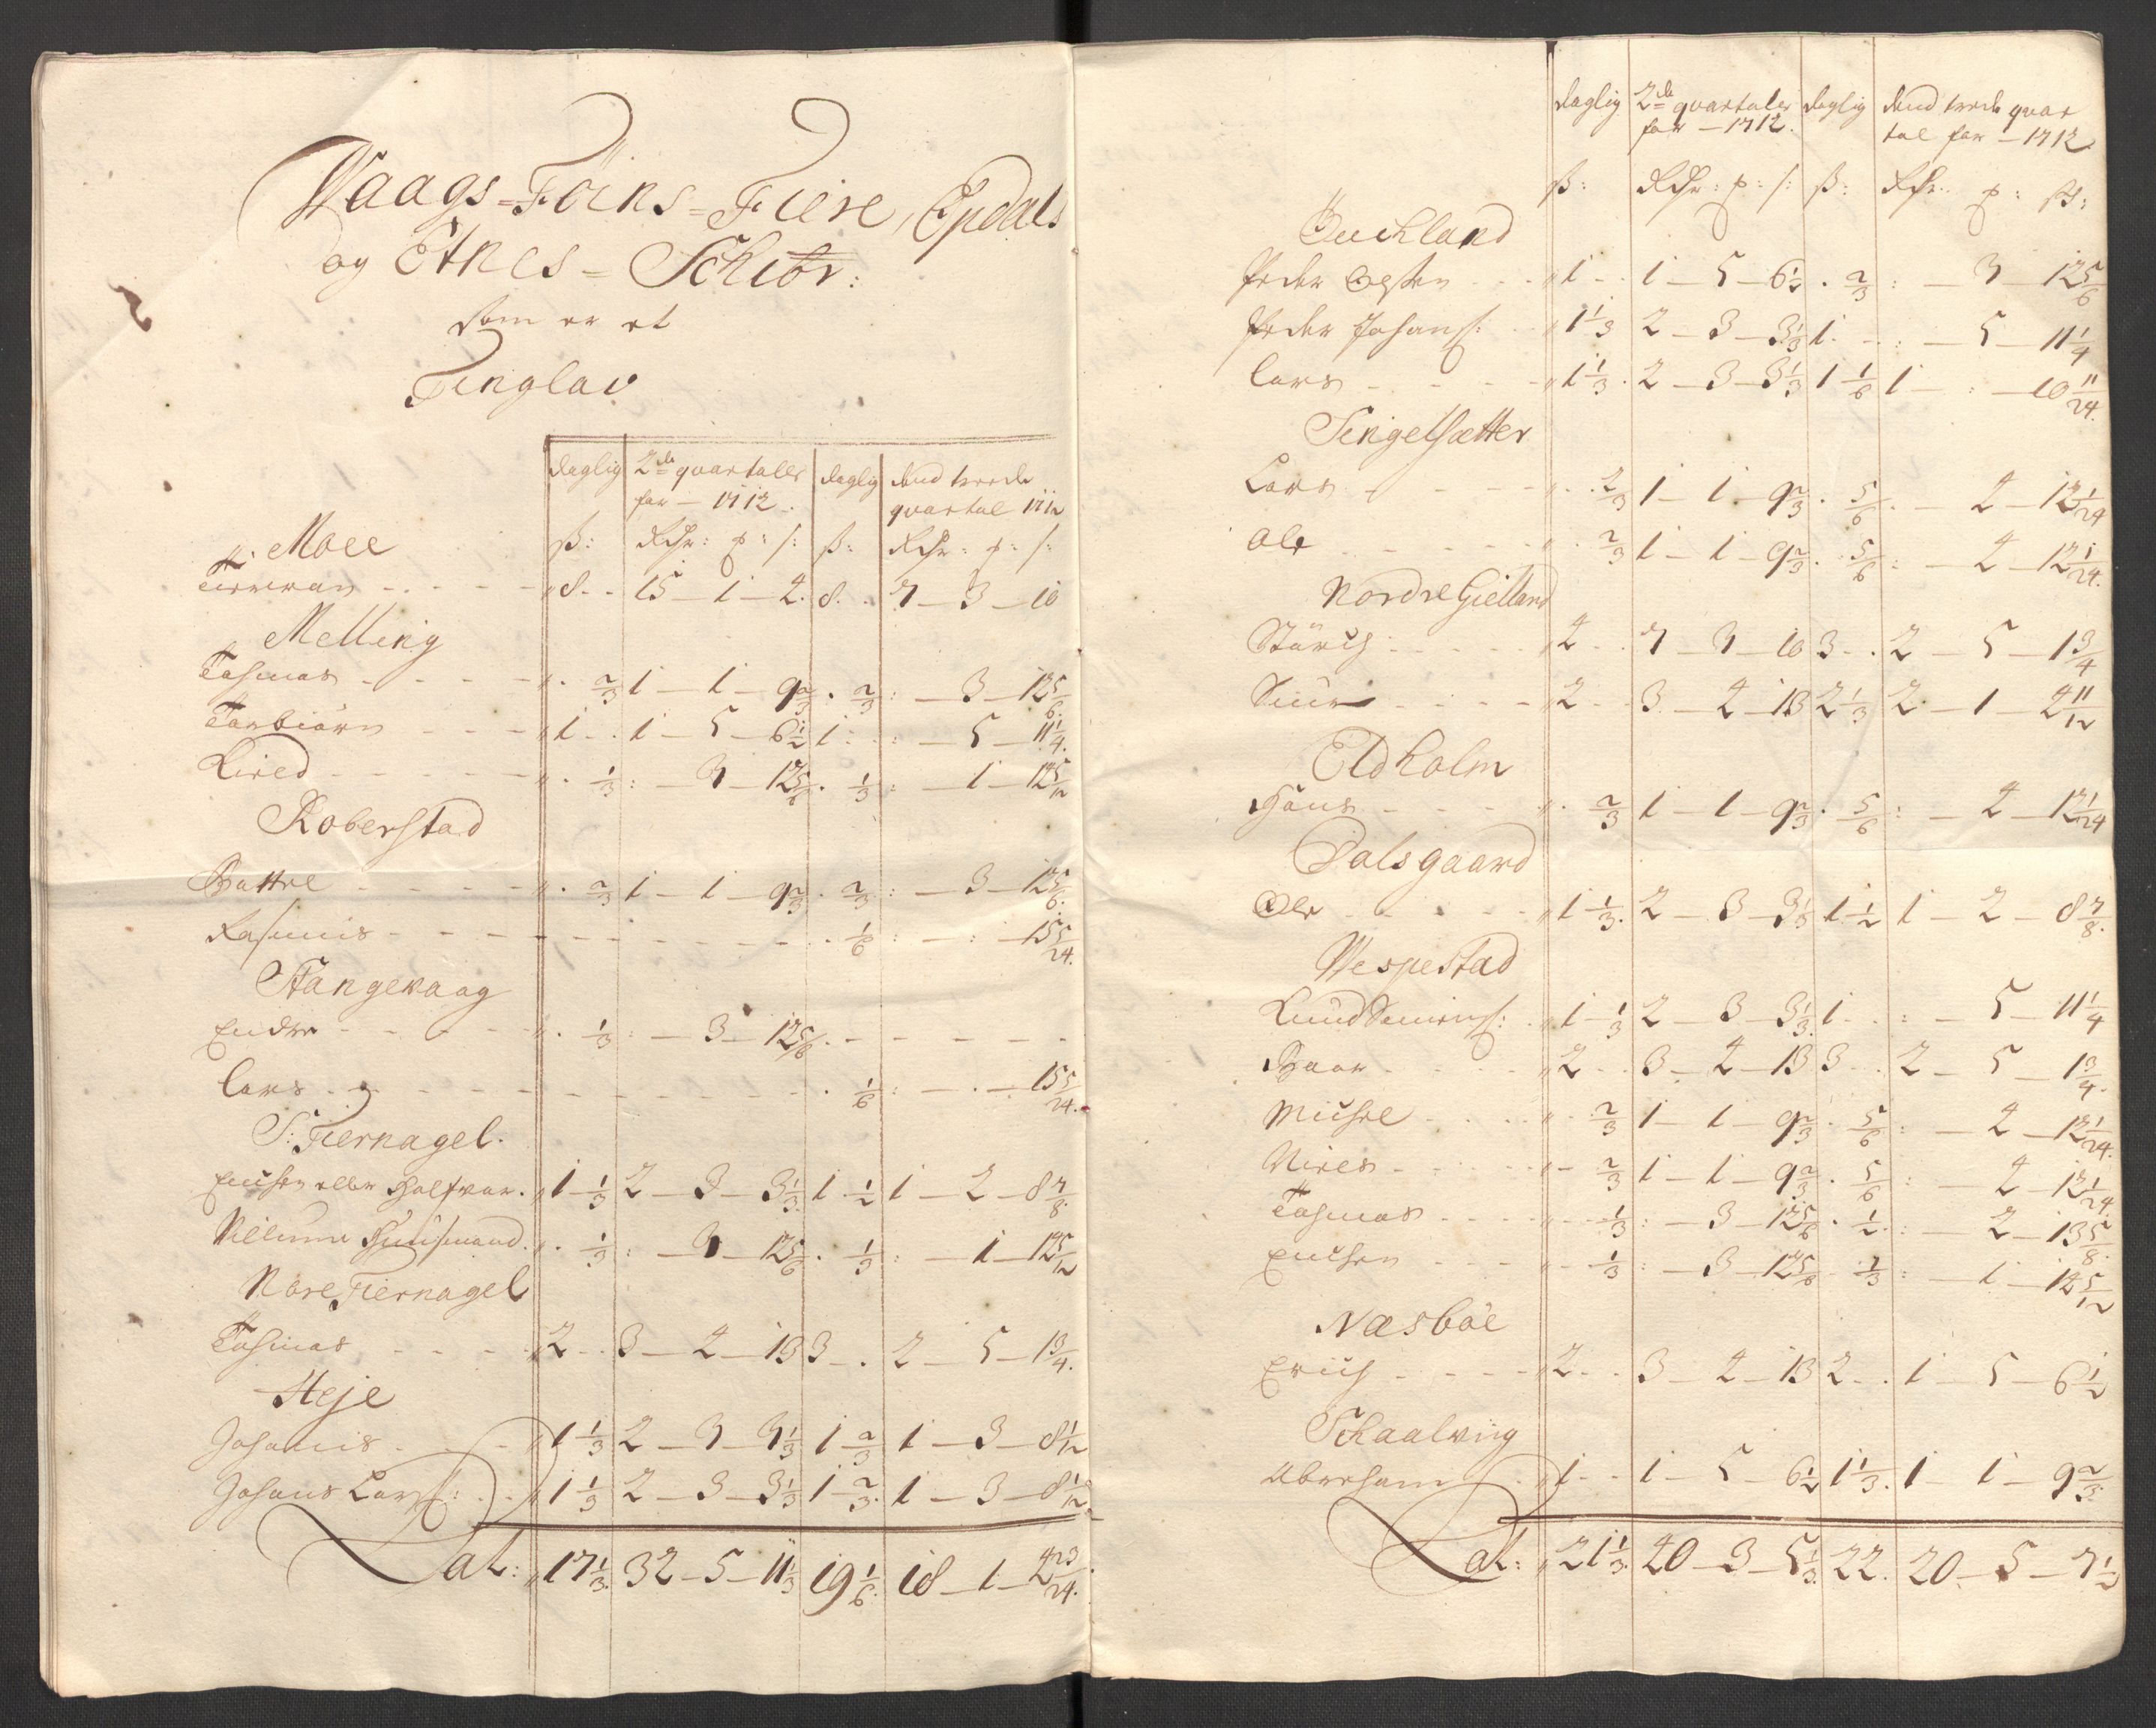 Waags-Föins-Fiere, Epdals
og Etnes-Schibr:
som er et
Tinglav
daglig 2de quartaler for - 1712. daglig dend tredie quartal 1712
ß: Rdr: p: s: ß: Rdr: p: s:
Moee
8 - 15 - 1 - 2. 8. 7 - 3 - 10
Melling
Tosmas - - - - 2/3 1 - 1 - 9 2/3 . 2/3 : - 3 - 12 5/6.
Torbiörn - - - 1 - 1 - 5 - 6 1/2 1 - : - 5 - 11 1/4.
- - - - - 1/3 : - 3 - 12 5/6 . 1/3 : - 1 - 12 5/12
Roberstad
Battel - - - - 2/3 1 - 1 - 9 2/3 . 2/3 : - 3 - 12 5/6.
Rasmus - - - - - - - - 1/6 : - : - 15 5/24.
Stangevaag
Endre - - - - 1/3 : - 3 - 12 5/6 . - - - - -
Lars - - - - - - - - 1/6 : - . - 15 5/24.
S: Fiernagel.
Knusen eller Halfvor. 1 1/3 2 - 3 - 3 1/3 1 1/2 1 - 2 - 8 7/8.
Villum Huusmand. 1/3 : - 3 - 12 5/6 . 1/3 : - 1 - 12 5/12
Nore Fiernagel
Tosmas - - - - 2 - 3 - 2 - 13 3 - . 2 - 5 - 1 3/4.
Heje
Johanis - - - 1 1/3 2 - 3 - 3 1/3 1 2/3 1 - 3 - 8 1/12
Johans Lars: - 1 1/3 2 - 3 - 3 1/3 1 2/3. 1 - 3 - 8 1/12.
Lat: 17 1/3. 32 - 5 - 11 1/3 19 1/6. 18 - 1 - 2 23/24.
daglig 2de quartaler for - 1712. daglig dend tredie quartal for - 1712
ß: Rdr: p: s: ß: Rdr: p: ß:
Buchland
Peder Olsen - - 1 - 1 - 5 - 6 1/2 . 2/3 : - 3 - 12 5/6
Peder Johans: - 1 1/3 2 - 3 - 3 1/3 1 - : - 5 - 11 1/4
Lars - - - - 1 1/3. 2 - 3 - 3 1/3 1 1/6 1 - : - 10 11/24.
Singelsætter
Lars - - - - 2/3 1 - 1 - 9 2/3 . 5/6 . - 2 - 12 1/24
Ole - - - - 2/3 1 - 1 - 9 2/3 . 5/6 : - 2 - 12 1/24.
Nordre Gielland
Störch - - - - 4 - 7 - 3 - 10 3 - . 2 - 5 - 1 3/4
Siur - - - - 2 - 3 - 2 - 13 2 1/3 2 - 1 - 2 11/12
Eldholm
Hans - - - - 2/3 1 - 1 - 9 2/3 . 5/6 : - 2 - 12 1/24
Dalsgaard
Ole - - - - 1 1/3. 2 - 3 - 3 1/3 1 1/2 1 - 2 - 8 7/8.
Wespestad
1 1/3 2 - 3 - 3 1/3. 1 - : - 5 - 11 1/4
- - - - 2 - 3 - 2 - 13 3 - 2 - 5 - 1 3/4.
Michel - - - - 2/3 1 - 1 - 9 2/3 . 5/6 : - 2 - 12 1/24.
- - - - 2/3 1 - 1 - 9 2/3 . 5/6 : - 2 - 12 1/24.
Tosmas - - - - 1/3 : - 3 - 12 5/6 . 1/2 : - 2 - 13 5/8.
Knusen - - - - 1/3 : - 3 - 12 5/6 1/3 : - 1 - 12 5/12
Næsböe
Erich - - - - 2 - 3 - 2 - 13 2 - . 1 - 5 - 6 1/2
Schaalvig
Abraham - 1 - 1 - 5 - 6 1/2 1 1/3. 1 - 1 - 9 2/3
Lat: 21 1/3. 40 - 3 - 5 1/3. 22. 20 - 5 - 7 1/2